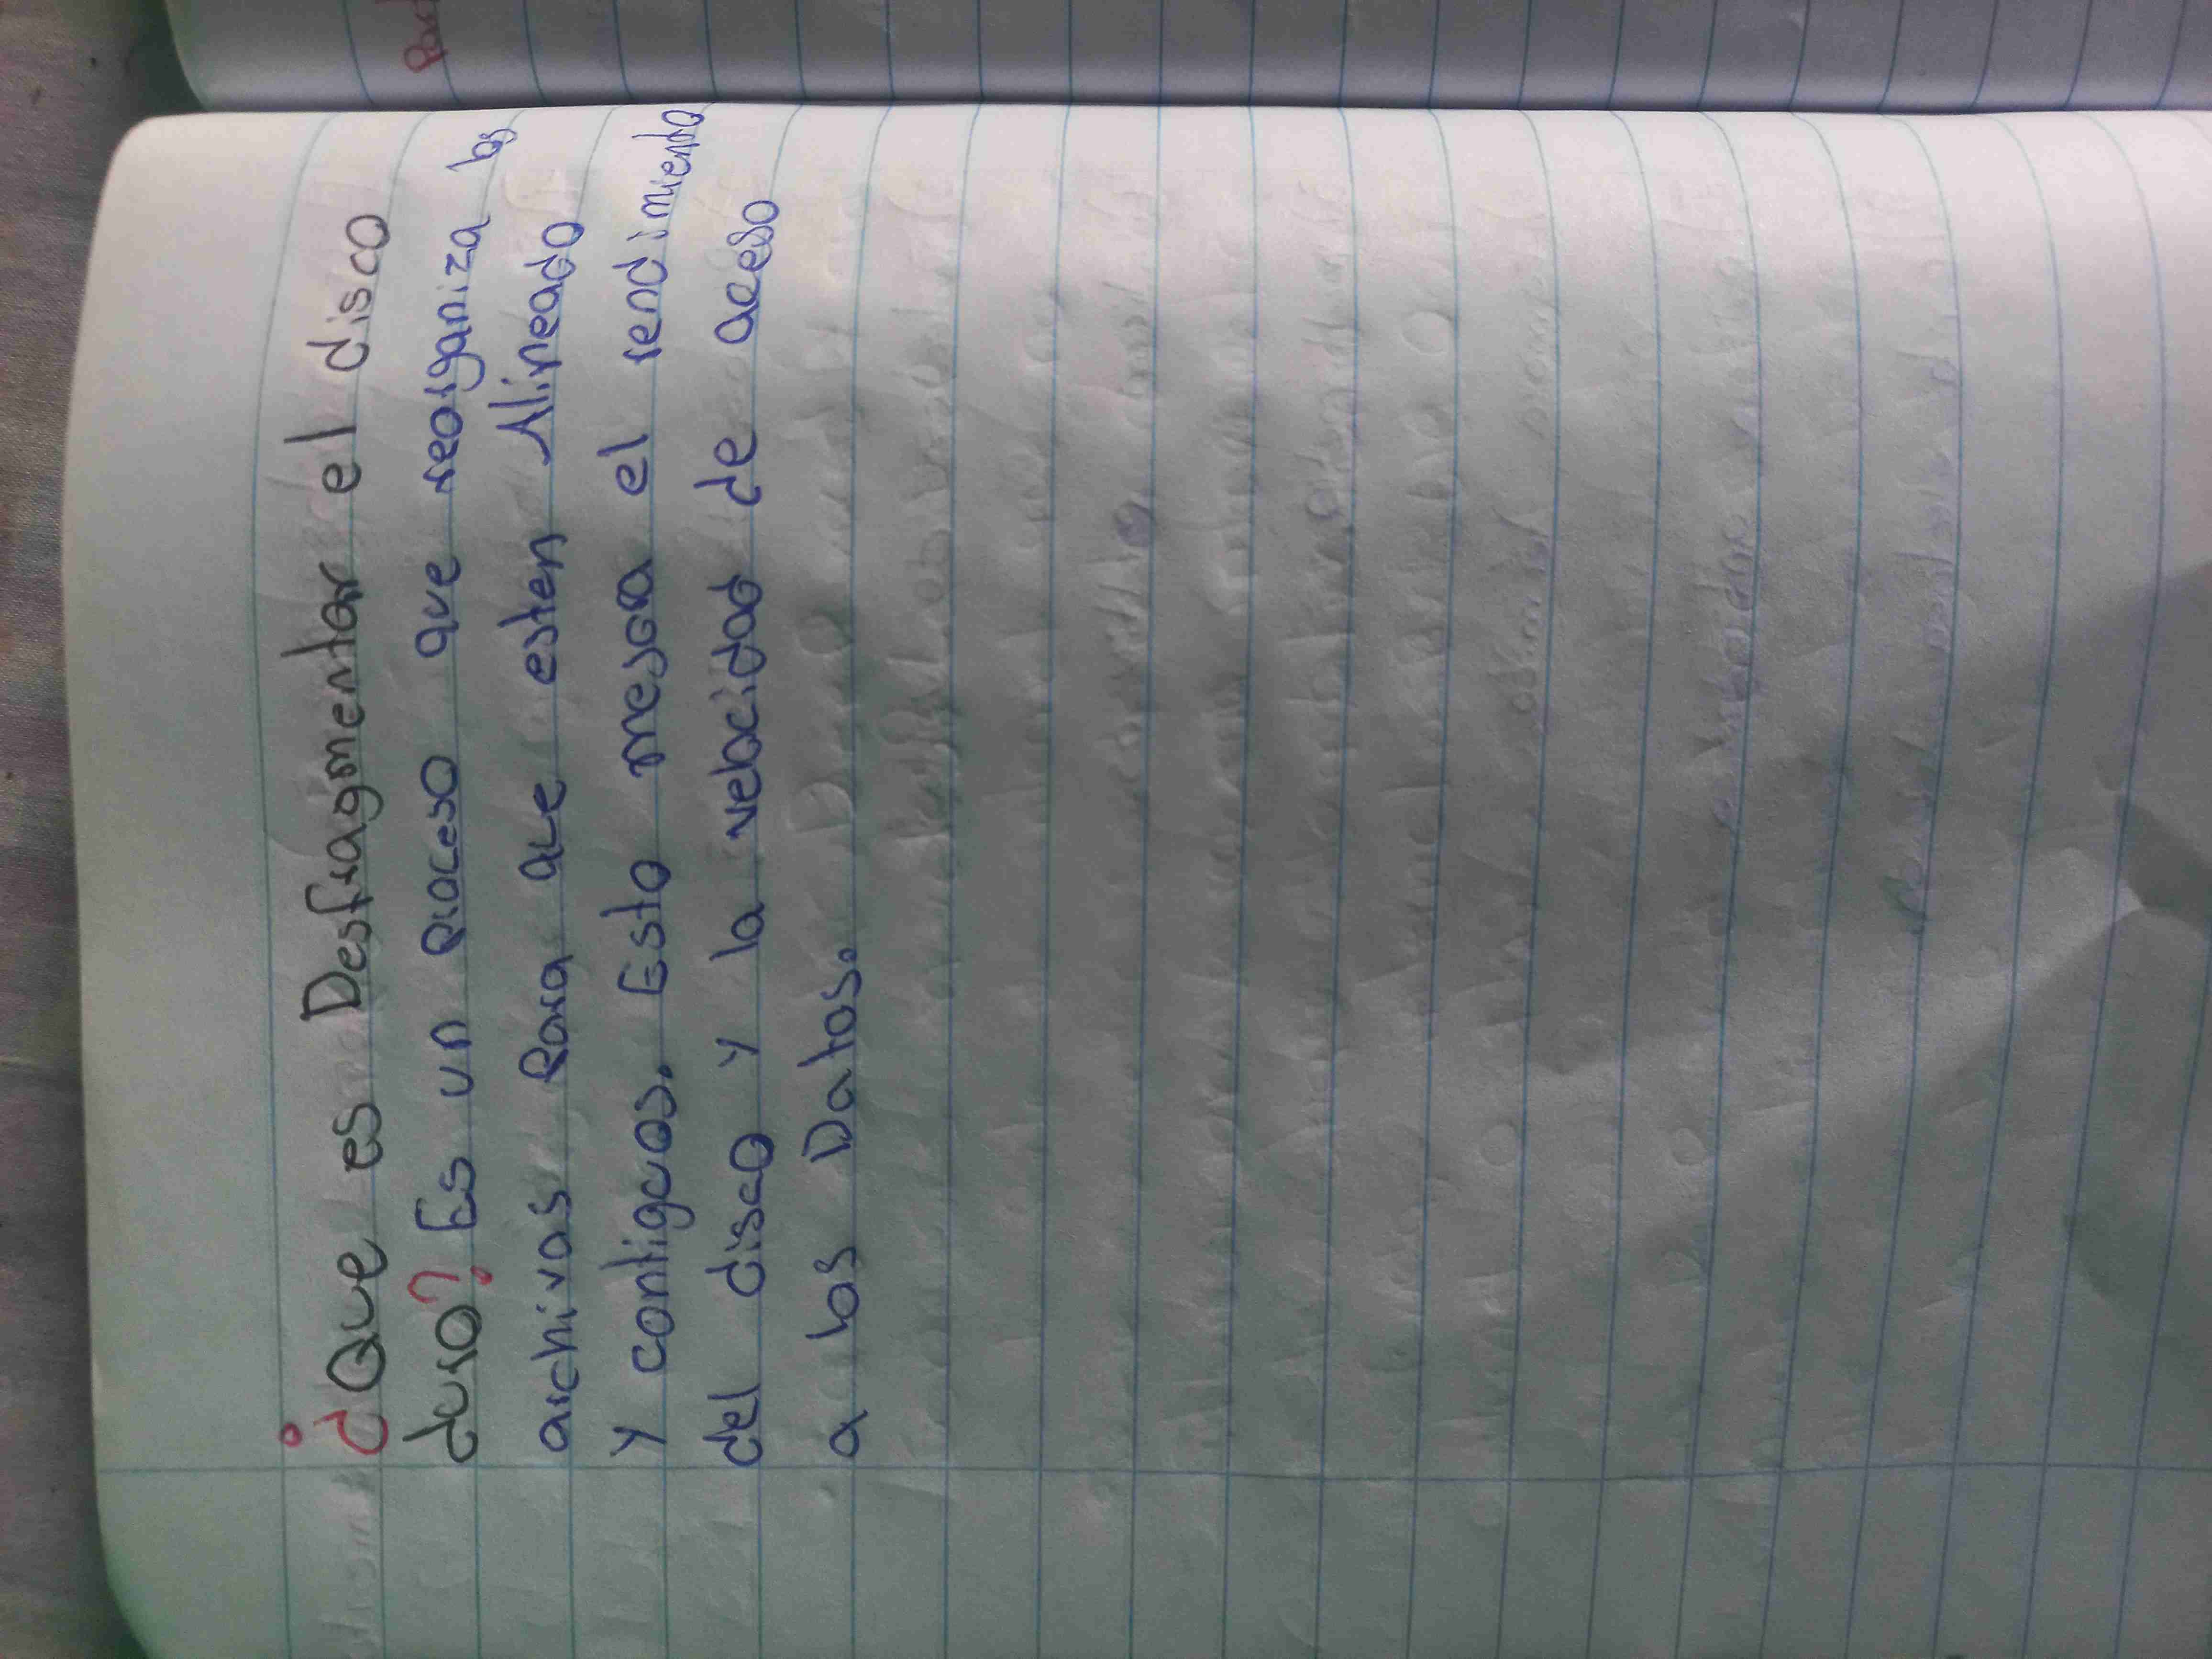 ¿Que es Desfragmentar el disco
duro? Es un proceso que reorganiza los
archivos Para que esten Alineado
y contiguos. Esto mesora el rendimiento
del disco y la velocidad de aceso
a los Datos.